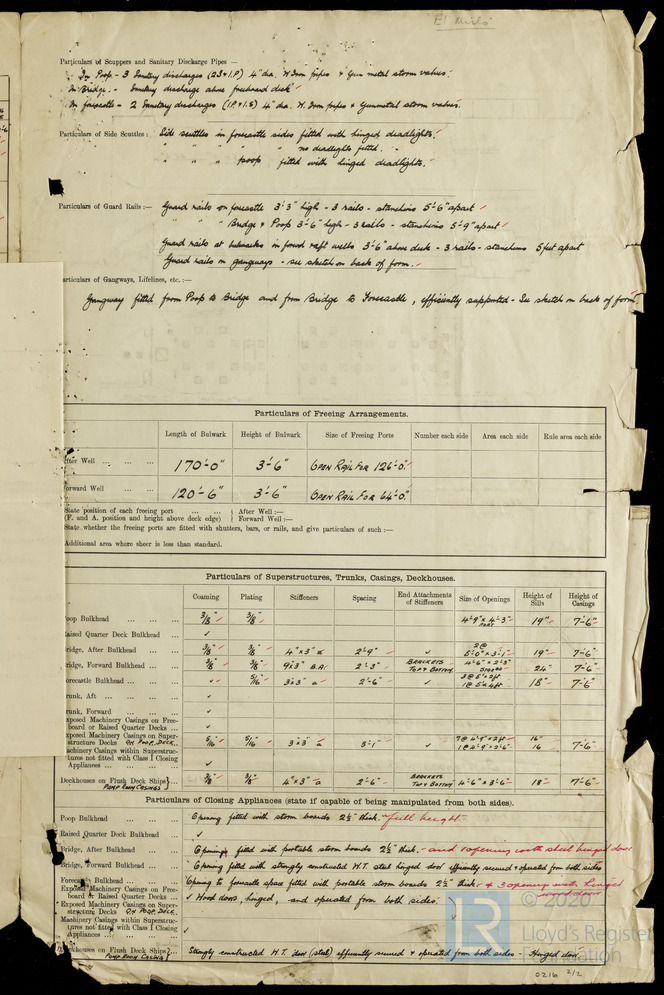 El Mirlo
Particulars of Scuppers and Sanitary Discharge Pipes —
In Poop - 3 Sanitary discharges (2S + 1P) 4" dia. W. Iron pipes + Gun metal storm valves.
In Bridge. - Sanitary discharge above freeboard deck
In forecastle - 2 Sanitary discharges (1P. + 1.S) 4" dia. W. Iron pipes + Gunmetal storm valves.
Particulars of Side Scuttles :— Side scuttles in forecastle sides fitted with hinged deadlights.
" " " " no deadlights fitted.
" " " poop fitted with hinged deadlights.
Particulars of Guard Rails :— Guard rails on forecastle 3'-3" high - 3 rails - stanchions 5'-6" apart
" " " Bridge & Poop 3'-6" high - 3 rails - stanchions 5'-9" apart
Guard rails at bulwarks in forwd & aft wells 3'-6" above deck - 3 rails - stanchions 5 feet apart
Guard rails on gangways - see sketch on back of form.
articulars of Gangways, Lifelines, etc. :—
Gangway fitted from Poop to Bridge and from Bridge to Forecastle, efficiently supported - See sketch on back of form.
Particulars of Freeing Arrangements.
Length of Bulwark Height of Bulwark Size of Freeing Ports Number each side Area each side Rule area each side
After Well ... ... ... 170'-0" 3'-6" OPEN RAIL FOR 126'-0"
Forward Well ... ... 120'-6" 3'-6" OPEN RAIL FOR 64'-0"
State position of each freeing port ... ... } After Well :—
(F. and A. position and height above deck edge) } Forward Well :—
State whether the freeing ports are fitted with shutters, bars, or rails, and give particulars of such :—
Additional area where sheer is less than standard.
Particulars of Superstructures, Trunks, Casings, Deckhouses.
Coaming Plating Stiffeners Spacing End Attachments of Stiffeners Size of Openings Height of Sills Height of Casings
Poop Bulkhead ... ... ... 3/8" 3/8" 4'-9" x 4'-3" 19" 7'-6"
Raised Quarter Deck Bulkhead ...
Bridge, After Bulkhead ... ... 3/8" 3/8" 4" x 3" a 2'-9" 2 @ 5'-0" x 3'-1" 19" 7'-6"
Bridge, Forward Bulkhead ... ... 3/8" 3/8" 9 x 3" B.A. 2'-3" BRACKETS TOP & BOTTOM 4'-6" x 2'-3" 24" 7'-6"
Forecastle Bulkhead ... ... ... 5/16 3" x 3" a 2'-6" 18" 7'-6"
Trunk, Aft ... ... ...
Trunk, Forward ... ... ...
Exposed Machinery Casings on Free-
board or Raised Quarter Decks ...
Exposed Machinery Casings on Super-
structure Decks ON POOP DECK 5/16 5/16 3" x 3" a 3'-1" 16" 16 7'-6
Machinery Casings within Superstruc-
tures not fitted with Class I Closing
Appliances ... ... ...
Deckhouses on Flush Deck Ships } ... 3/8" 3/8" 4" x 3" a 2'-6" BRACKETS TOP & BOTTOM 4'-6" x 3'-6" 18" 7'-6"
PUMP ROOM CASINGS }
Particulars of Closing Appliances (state if capable of being manipulated from both sides).
Poop Bulkhead ... ... ... Opening fitted with storm boards 2½" thick. full height
Raised Quarter Deck Bulkhead ...
Bridge, After Bulkhead ... ... Openings fitted with portable storm boards 2½" thick. - and 1 opening with steel hinged door
Bridge, Forward Bulkhead ... ... Opening fitted with strongly constructed W.T. steel hinged door efficiently secured & operated from both sides
Forecastle Bulkhead ... ... Opening to forecastle space fitted with portable storm boards 2½" thick. & 3 openings with hinged wood doors
Exposed Machinery Casings on Free-
board or Raised Quarter Decks ... Wood doors, hinged, and operated from both sides.
Exposed Machinery Casings on Super-
structure Decks ON POOP DECK
Machinery Casings within Superstruc-
tures not fitted with Class I Closing
Appliances ... ... ...
Deckhouses on Flush Deck Ships } ... Strongly constructed W.T. door (steel) efficiently secured & operated from both sides - Hinged door.
PUMP ROOM CASING }
LR © 2020
Lloyd's Register
Foundation
0216 2/2